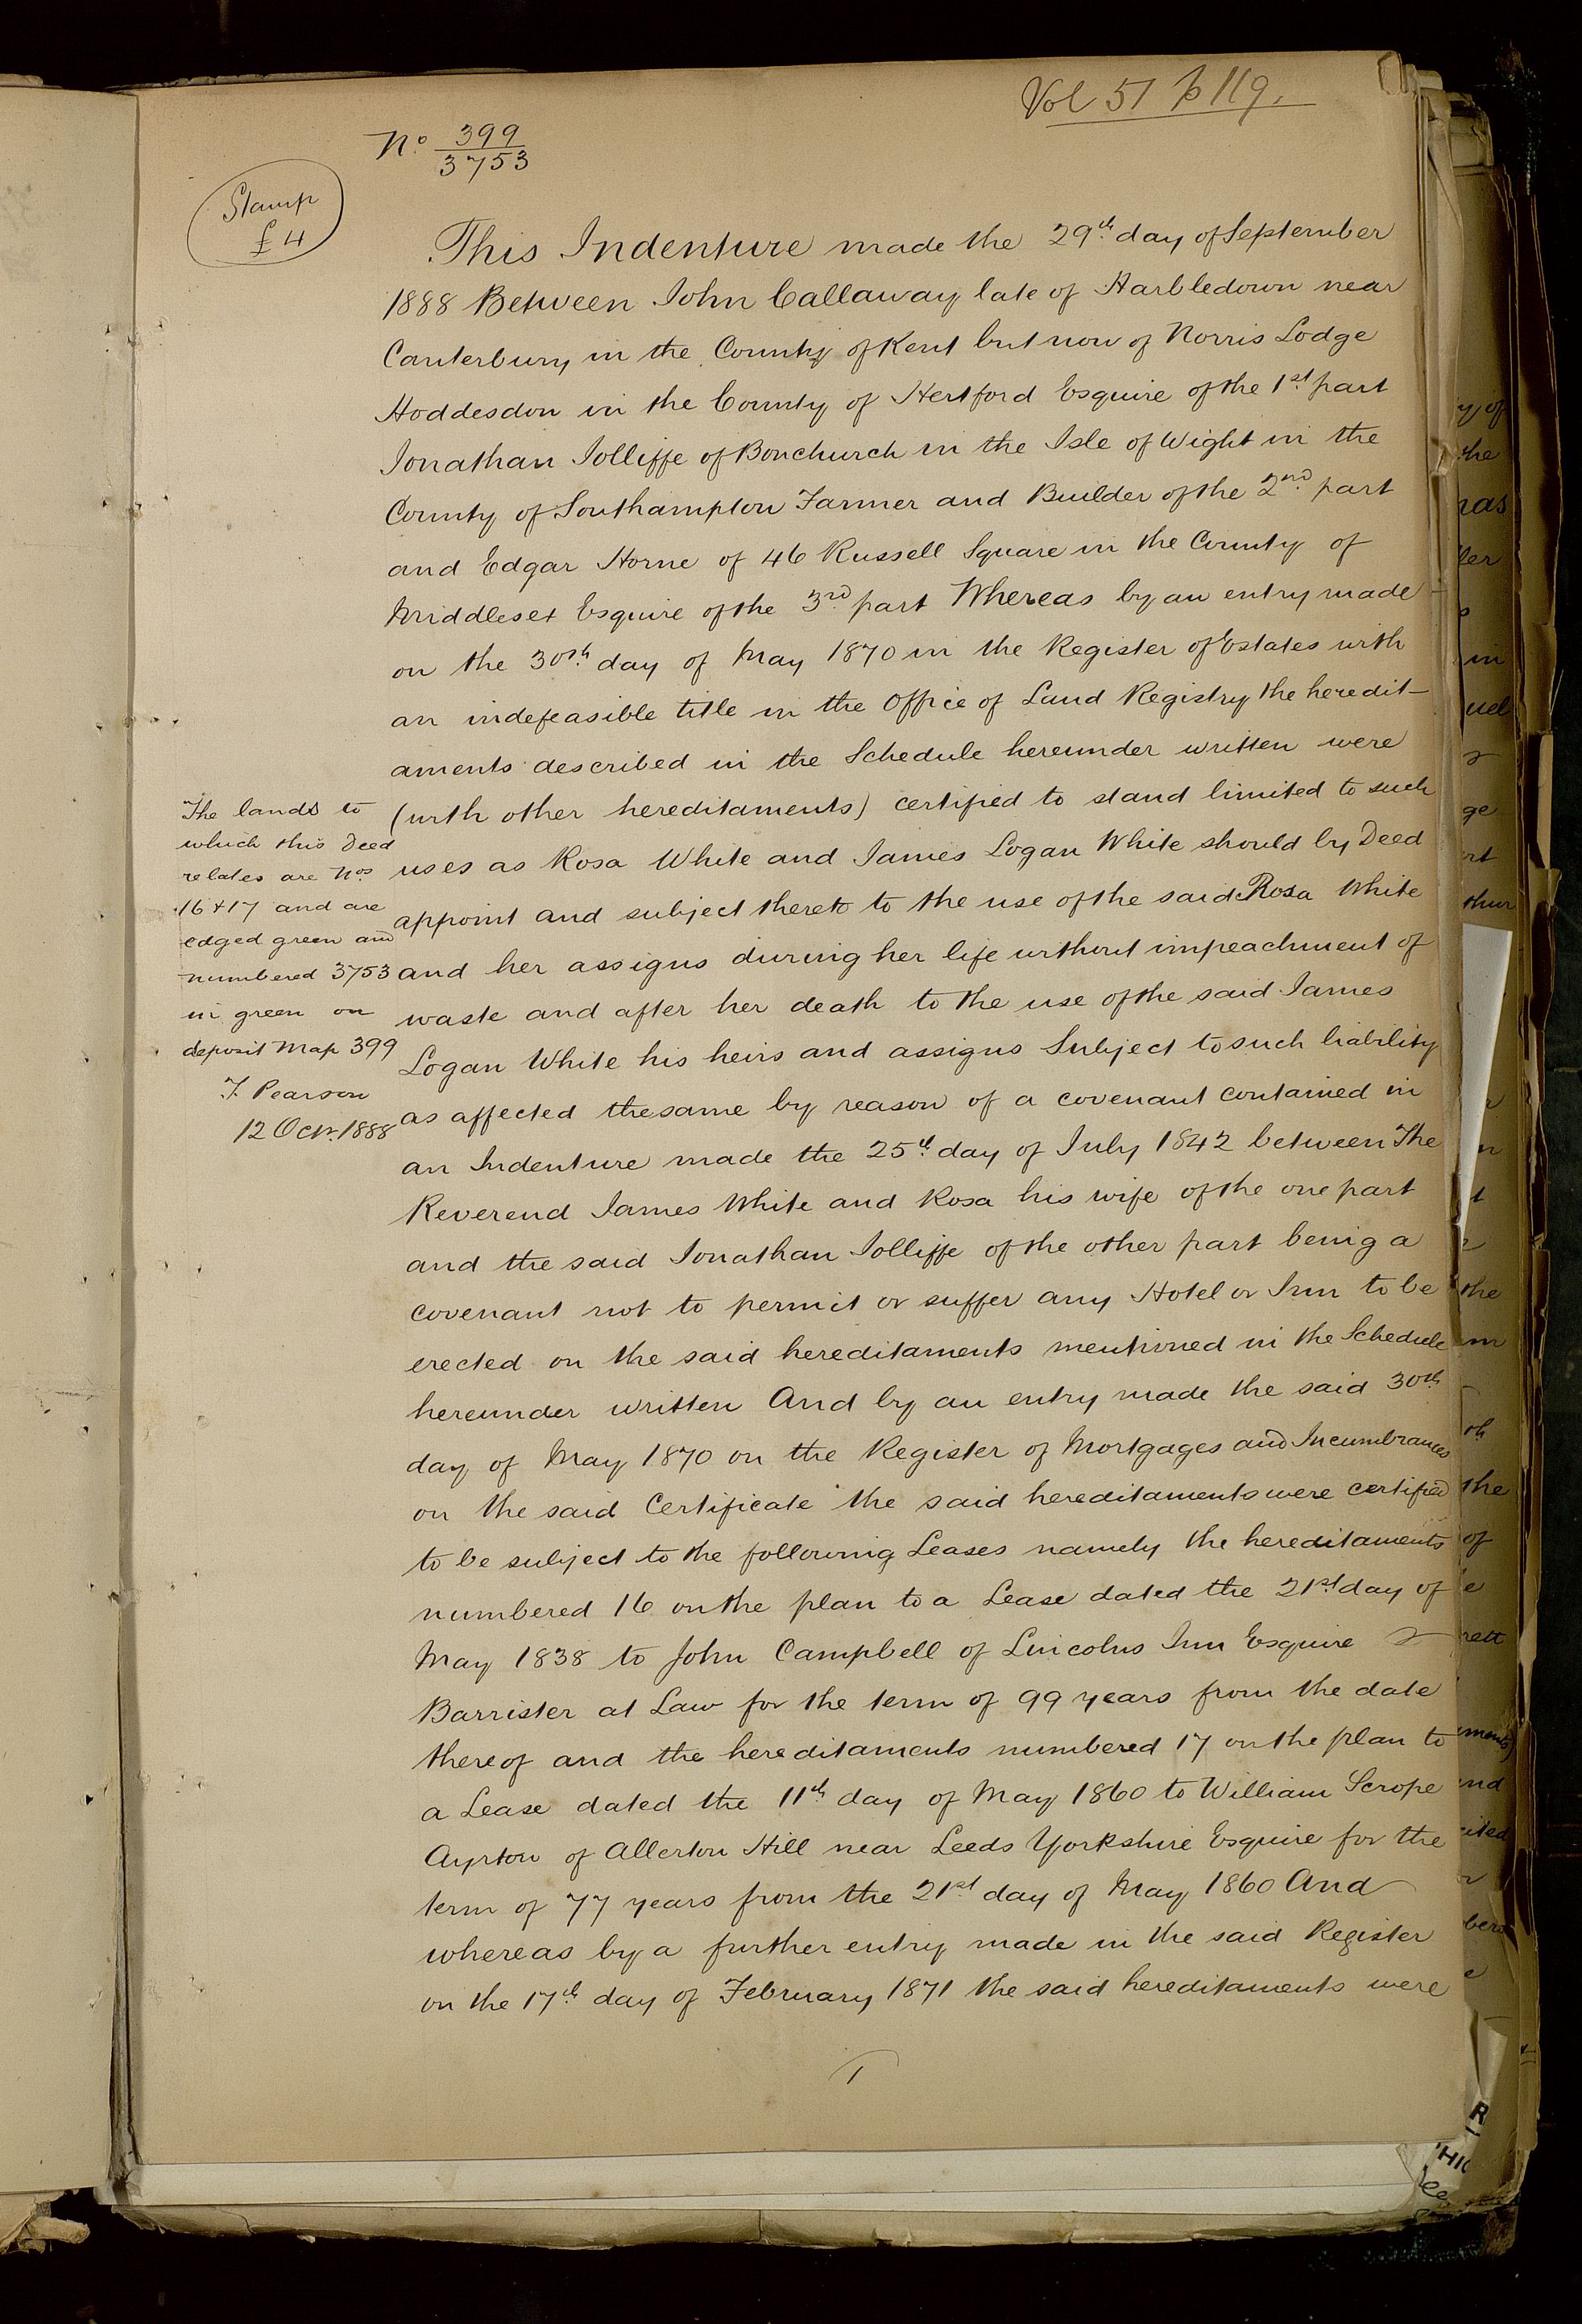 Vol 51 p 119.
No. 399
3753
Stamp
£4
This Indenture made the 29th day of September
1888 Between John Callaway late of Harbledown near
Canterbury in the County of Kent but now of Norris Lodge
Hoddesdon in the County of Hertford Esquire of the 1st part
Jonathan Jolliffe of Bonchurch in the Isle of Wight in the
County of Southampton Farmer and Builder of the 2nd part
and Edgar Horne of 46 Russell Square in the County of
Middlesex Esquire of the 3rd part Whereas by an entry made
on the 30th day of May 1870 in the Register of Estates with
an indefeasible title in the Office of Land Registry the heredit-
aments described in the Schedule hereunder written were
(with other hereditaments) certified to stand limited to such
uses as Rosa White and James Logan White should by Deed
appoint and subject thereto to the use of the said Rosa White
and her assigns during her life without impeachment of
waste and after her death to the use of the said James
Logan White his heirs and assigns Subject to such liability
as affected the same by reason of a covenant contained in
an Indenture made the 25th day of July 1842 between The
Reverend James White and Rosa his wife of the one part
and the said Jonathan Jolliffe of the other part being a
covenant not to permit or suffer any Hotel or Inn to be
erected on the said hereditaments mentioned in the Schedule
hereunder written And by an entry made the said 30th
day of May 1870 on the Register of Mortgages and Incumbrances
on the said Certificate the said hereditaments were certified
to be subject to the following Leases namely the hereditaments
numbered 16 on the plan to a Lease dated the 21st day of
May 1838 to John Campbell of Lincolns Inn Esquire
Barrister at Law for the term of 99 years from the date
thereof and the hereditaments numbered 17 on the plan to
a Lease dated the 11th day of May 1860 to William Scrope
Ayrton of Allerton Hill near Leeds Yorkshire Esquire for the
term of 77 years from the 21st day of May 1860 And
whereas by a further entry made in the said Register
on the 17th day of February 1871 the said hereditaments were
1
The lands to
which this Deed
relates are Nos
16 & 17 and are
edged green and
numbered 3753
in green on
deposit Map 399
F. Pearson
12 Octr. 1888